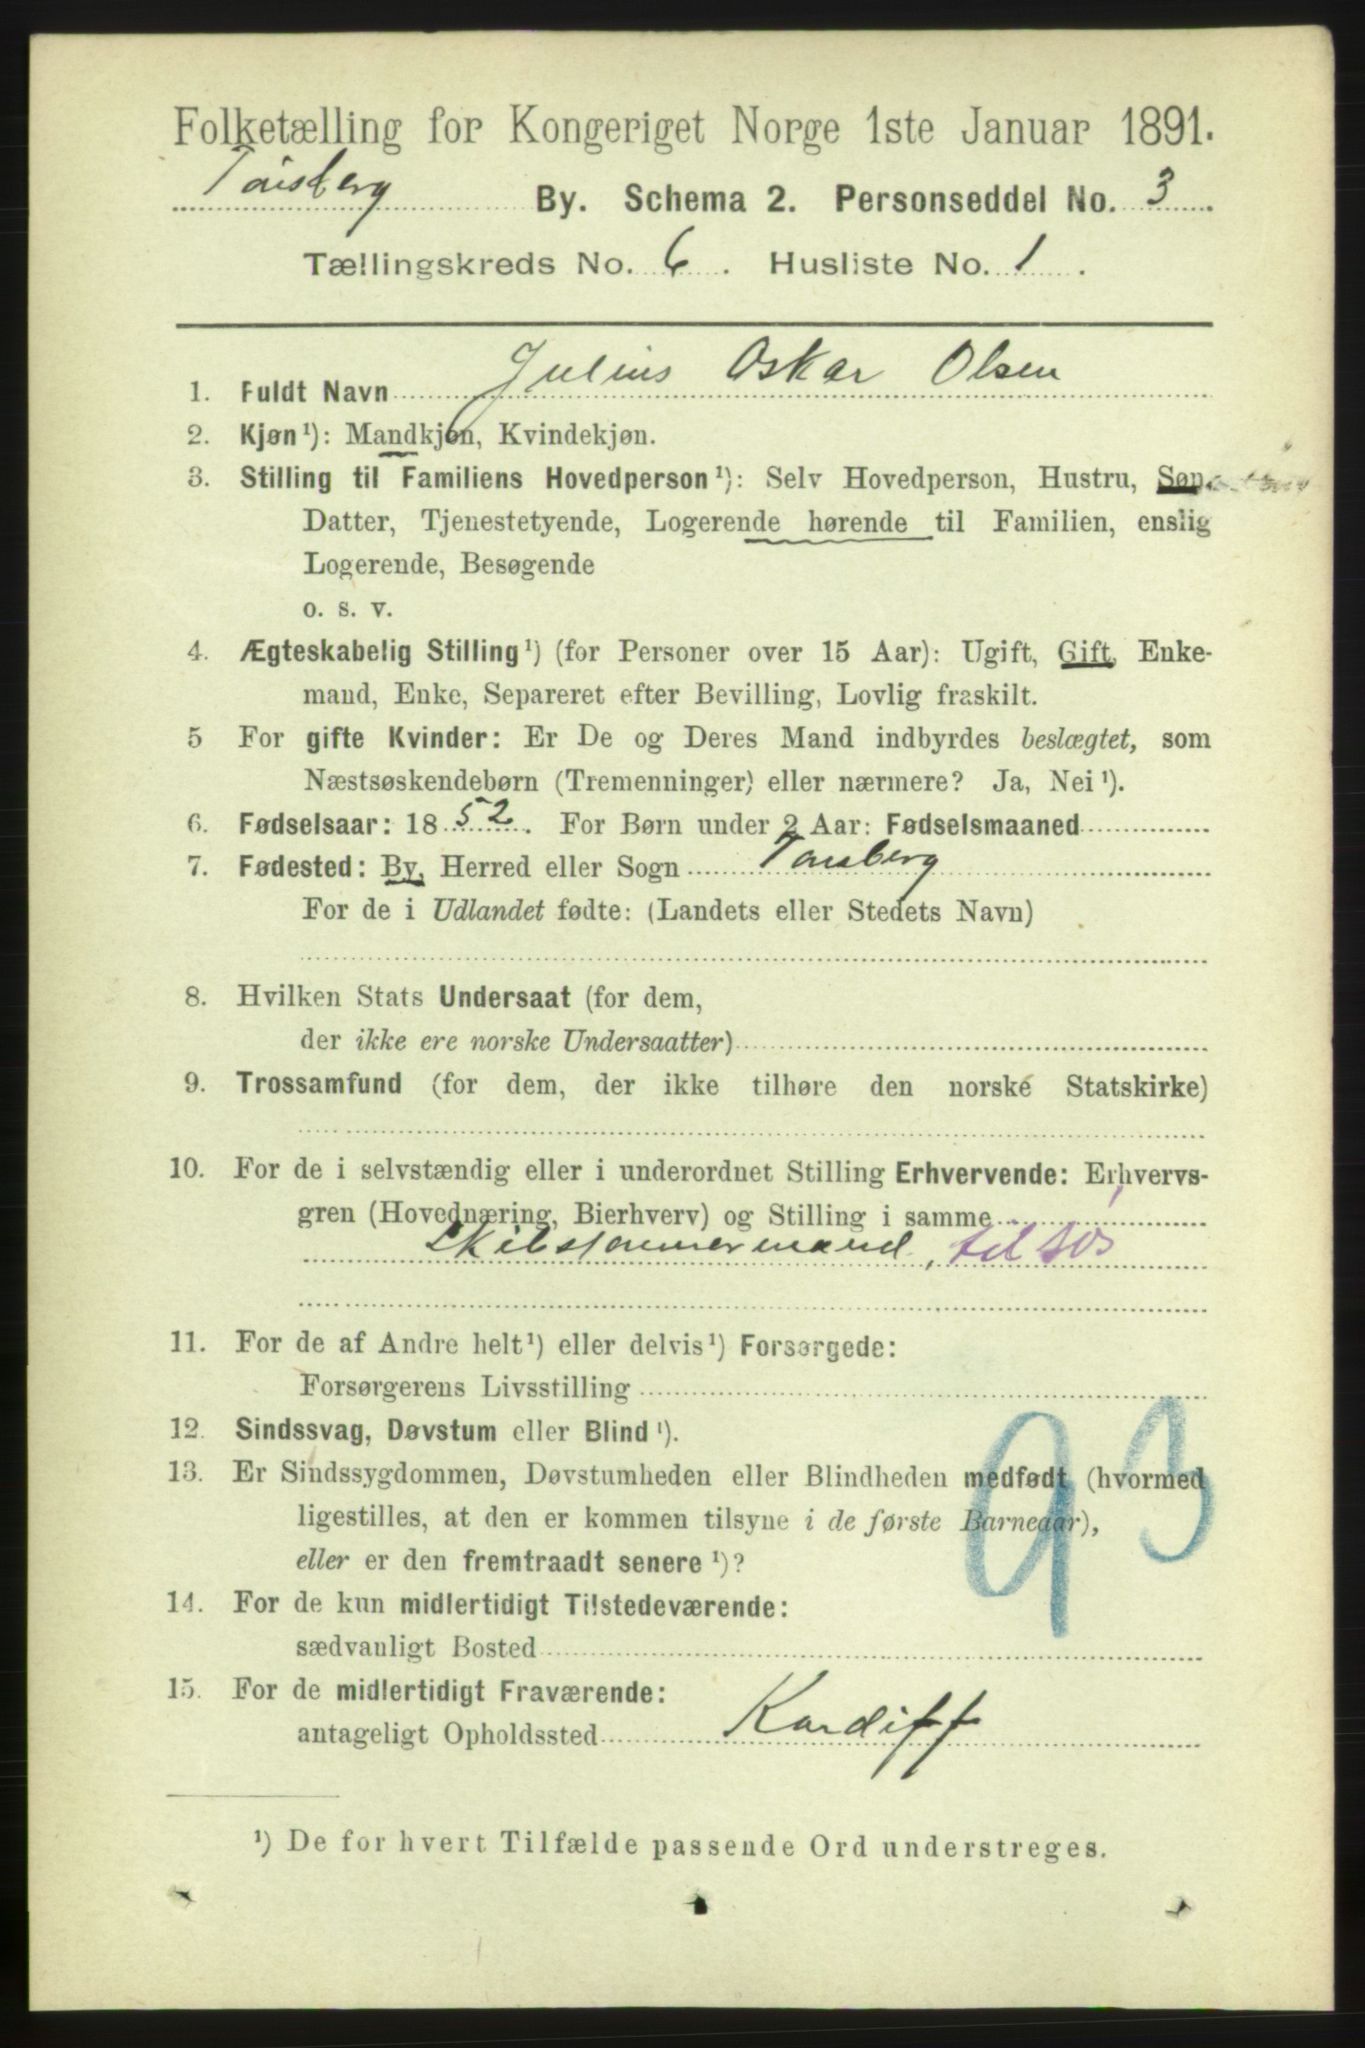 Folketælling for Kongeriget Norge 1ste Januar 1891.
Tønsberg By. Schema 2. Personseddel No. 3
Tællingskreds No. 6. Husliste No. 1.
Julius Oskar Olsen
1. Fuldt Navn
2. Kjøn¹): Mandkjøn, Kvindekjøn.
3. Stilling til Familiens Hovedperson¹): Selv Hovedperson, Hustru, Søn,
Datter, Tjenestetyende, Logerende hørende til Familien, enslig
Logerende, Besøgende
o. s. v.
4. Ægteskabelig Stilling¹) (for Personer over 15 Aar): Ugift, Gift, Enke-
mand, Enke, Separeret efter Bevilling, Lovlig fraskilt.
5 For gifte Kvinder: Er De og Deres Mand indbyrdes beslægtet, som
Næstsøskendebørn (Tremenninger) eller nærmere? Ja, Nei¹).
6. Fødselsaar: 1852. For Børn under 2 Aar: Fødselsmaaned
7. Fødested: By, Herred eller Sogn Tønsberg
For de i Udlandet fødte: (Landets eller Stedets Navn)
8. Hvilken Stats Undersaat (for dem,
der ikke ere norske Undersaatter)
9. Trossamfund (for dem, der ikke tilhøre den norske Statskirke)
10. For de i selvstændig eller i underordnet Stilling Erhvervende: Erhvervs-
gren (Hovednæring, Bierhverv) og Stilling i samme
Skibstømmermand, tilsøs
11. For de af Andre helt¹) eller delvis¹) Forsørgede:
Forsørgerens Livsstilling
12. Sindssvag, Døvstum eller Blind¹).
13. Er Sindssygdommen, Døvstumheden eller Blindheden medfødt (hvormed
ligestilles, at den er kommen tilsyne i de første Barneaar),
eller er den fremtraadt senere¹)?
93
14. For de kun midlertidigt Tilstedeværende:
sædvanligt Bosted
15. For de midlertidigt Fraværende:
antageligt Opholdssted Kardiff
¹) De for hvert Tilfælde passende Ord understreges.